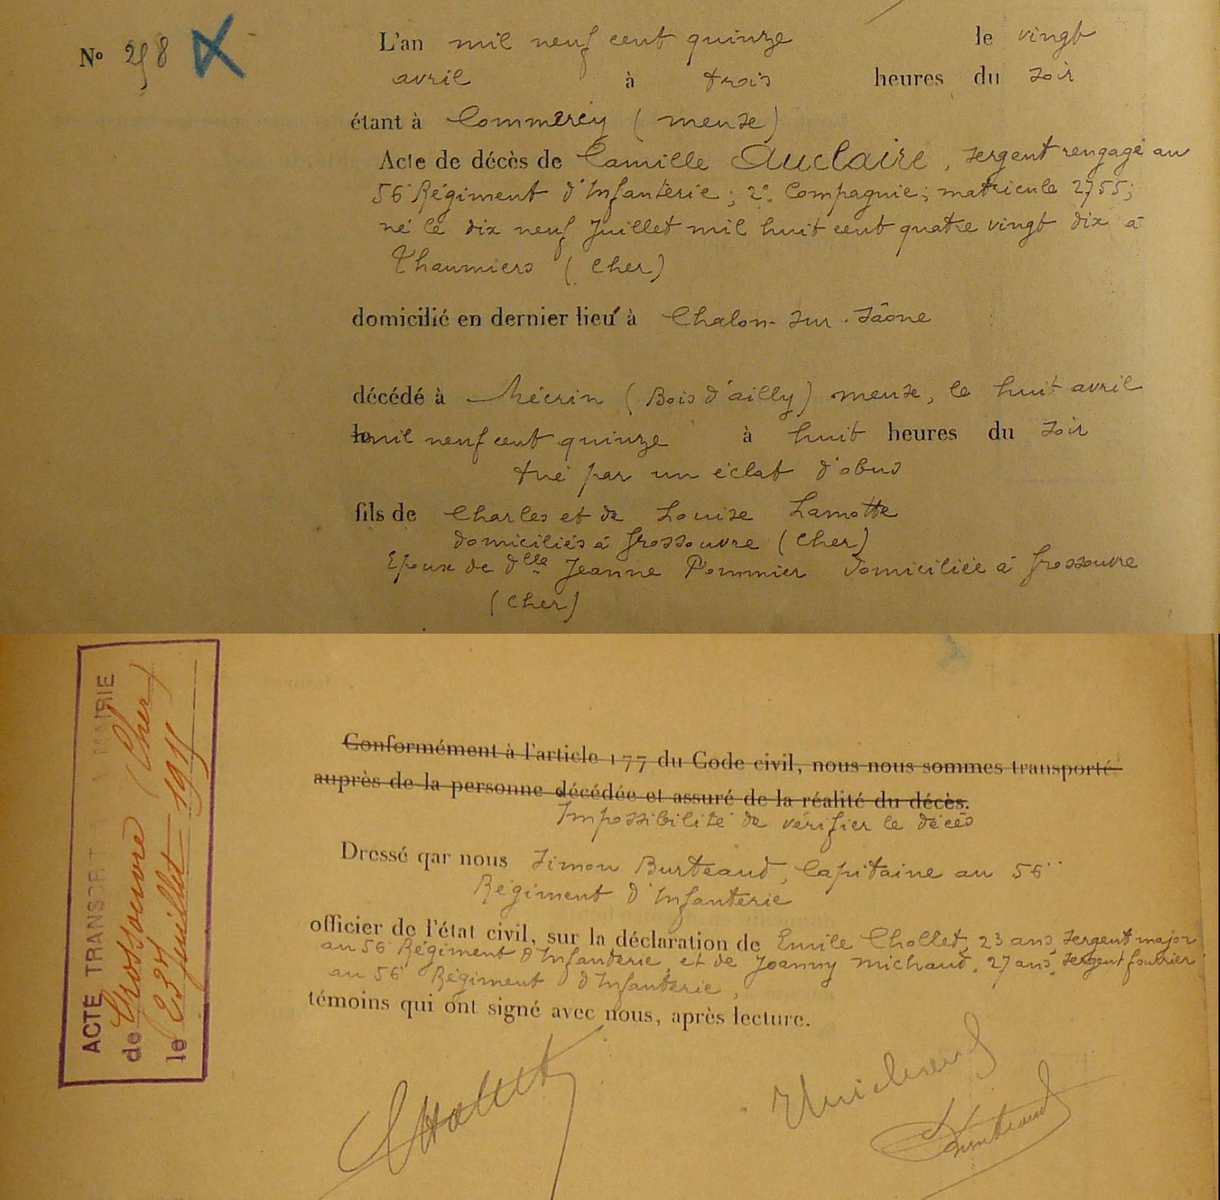 N° 258
L'an mil neuf cent quinze le vingt
avril à trois heures du soir
étant à Commercy (meuse)
Acte de décès de Camille Auclaire, sergent rengagé au
56e Régiment d'Infanterie; 2e Compagnie; matricule 2755;
né le dix neuf Juillet mil huit cent quatre vingt dix à
Thaumiers (Cher)
domicilié en dernier lieu à Chalon-sur-Saône
décédé à Mécrin (Bois d'ailly) meuse, le huit avril
le mil neuf cent quinze à huit heures du soir
tué par un éclat d'obus
fils de Charles et de Louise Lamotte
domiciliés à Grossouvre (Cher)
Epoux de dlle Jeanne Pommier domiciliée à Grossouvre
(Cher)
ACTE TRANSCRIT MAIRIE
de Grossouvre (Cher)
le 23 juillet 1915
Conformément à l'article 177 du Code civil, nous nous sommes transporté
auprès de la personne décédée et assuré de la réalité du décès.
Impossibilité de vérifier le décès
Dressé par nous Simon Burteaud, Capitaine au 56e
Régiment d'Infanterie
officier de l'état civil, sur la déclaration de Emile Chollet, 23 ans, sergent major
au 56e Régiment d'Infanterie, et de Joanny Michaud, 27 ans, sergent fourrier
au 56e Régiment d'Infanterie,
témoins qui ont signé avec nous, après lecture.
Chollet
Michaud
Burteaud